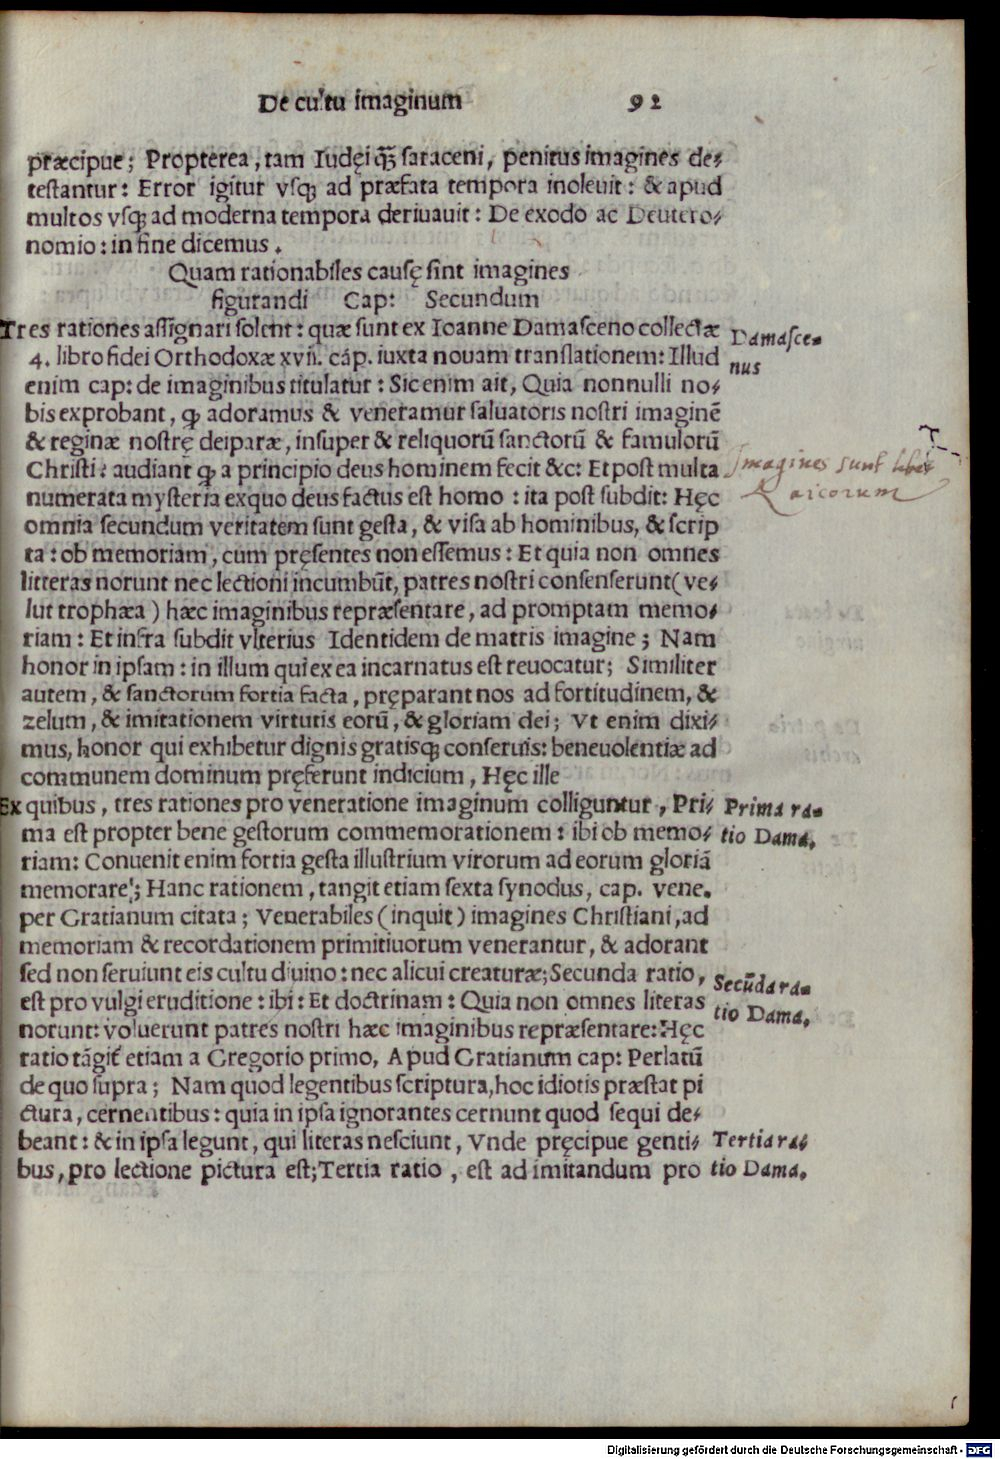 De cultu imaginum 92
præcipue; Propterea, tam Iudęi q̃ȝ saraceni, penitus imagines de⸗
testantur: Error igitur vsqꝫ ad præfata tempora inoleuit: & apud
multos vsqꝫ ad moderna tempora deriuauit: De exodo ac Deutero⸗
nomio: in fine dicemus.
Quam rationabiles causę sint imagines
figurandi Cap: Secundum
Tres rationes assignari solent: quæ sunt ex Ioanne Damasceno collectæ
Damasce⸗
4. libro fidei Orthodoxæ xvii. cáp. iuxta nouam translationem: Illud
nus
enim cap: de imaginibus titulatur: Sic enim ait, Quia nonnulli no⸗
bis exprobant, ꝙ adoramus & veneramur saluatoris nostri imaginē
& reginæ nostrę deiparæ, insuper & reliquorū sanctorū & famulorū
Christi: audiant ꝙ a principio deus hominem fecit &c: Et post multa
Imagines sunt libri
numerata mysteria ex quo deus factus est homo: ita post subdit: Hęc
Laicorum
omnia secundum veritatem sunt gesta, & visa ab hominibus, & scrip
ta: ob memoriam, cum pręsentes non essemus: Et quia non omnes
litteras norunt nec lectioni incumbūt, patres nostri consenserunt (ve⸗
lut trophæa) hæc imaginibus repræsentare, ad promptam memo⸗
riam: Et infra subdit vlterius Identidem de matris imagine; Nam
honor in ipsam: in illum qui ex ea incarnatus est reuocatur; Similiter
autem, & sanctorum fortia facta, pręparant nos ad fortitudinem, &
zelum, & imitationem virtutis eorū, & gloriam dei; Vt enim dixi⸗
mus, honor qui exhibetur dignis gratisqꝫ conseruis: beneuolentiæ ad
communem dominum pręferunt indicium, Hęc ille
Ex quibus, tres rationes pro veneratione imaginum colliguntur, Pri⸗
Prima ra⸗
ma est propter bene gestorum commemorationem: ibi ob memo⸗
tio Dama.
riam: Conuenit enim fortia gesta illustrium virorum ad eorum gloriā
memorare; Hanc rationem, tangit etiam sexta synodus, cap. vene.
per Gratianum citata; Venerabiles (inquit) imagines Christiani, ad
memoriam & recordationem primitiuorum venerantur, & adorant
sed non seruiunt eis cultu diuino: nec alicui creaturæ; Secunda ratio,
Secūda ra⸗
est pro vulgi eruditione: ibi: Et doctrinam: Quia non omnes literas
tio Dama.
norunt: voluerunt patres nostri hæc imaginibus repræsentare: Hęc
ratio tāgit etiam a Gregorio primo, Apud Gratianum cap: Perlatū
de quo supra; Nam quod legentibus scriptura, hoc idiotis præstat pi
ctura, cernentibus: quia in ipsa ignorantes cernunt quod sequi de⸗
beant: & in ipsa legunt, qui literas nesciunt, Vnde pręcipue genti⸗
Tertia ra⸗
bus, pro lectione pictura est; Tertia ratio, est ad imitandum pro
tio Dama.
Digitalisierung gefördert durch die Deutsche Forschungsgemeinschaft - DFG